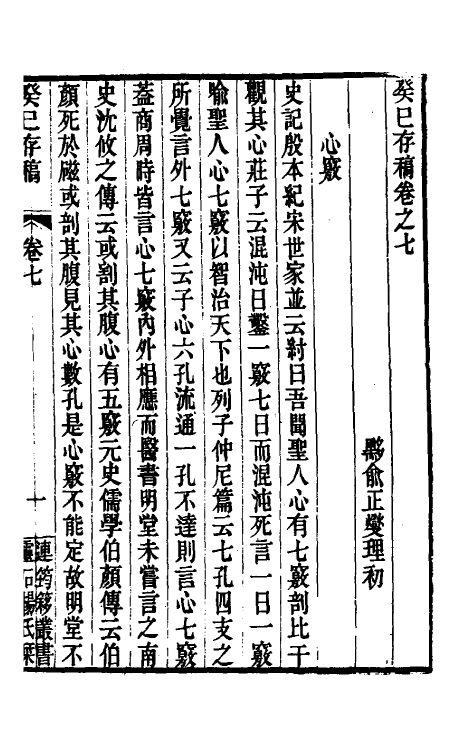 癸巳存稿卷之七
黟俞正燮理初
心竅
史記殷本紀宋世家並云紂曰吾聞聖人心有七竅剖比干
觀其心莊子云混沌日鑿一竅七日而混沌死言一日一竅
喻聖人心七竅以智治天下也列子仲尼篇云七孔四支之
所覺言外七竅又云子心六孔流通一孔不達則言心七竅
葢商周時皆言心七竅內外相應而醫書明堂未嘗言之南
史沈攸之傳云或割其腹心有五竅元史儒學伯顏傳云伯
顏死於磁或剖其腹見其心數孔是心竅不能定故明堂不
癸巳存稿
卷七
一
連筠簃叢書
靈石楊氏栞